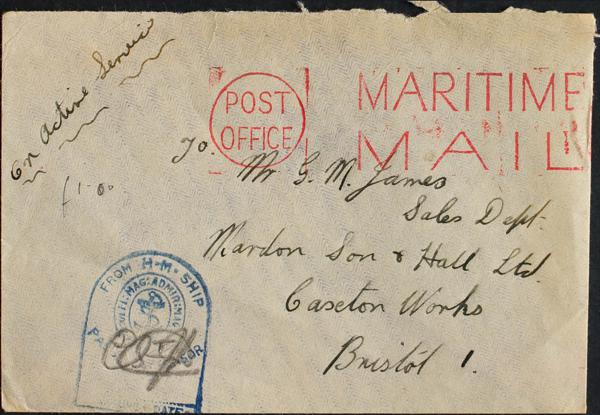 On Active Service
POST
OFFICE
MARITIME
MAIL
To.
Mr G. M. James
Sales Dept.
Mardon Son & Hall Ltd.
Caseton Works
Bristol 1.
£1-00
FROM H·M·SHIP
DATE